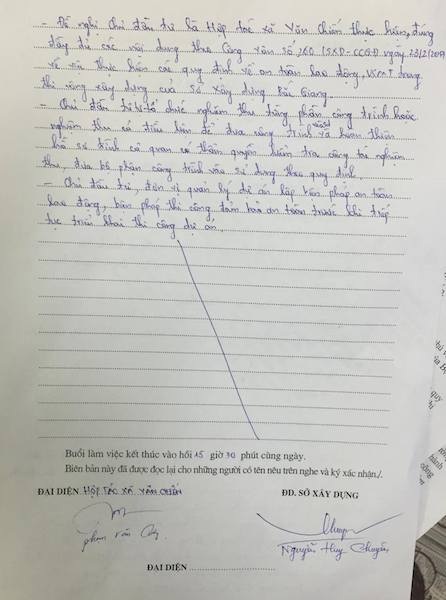 - Đề nghị Chủ đầu tư là Hợp tác xã Văn Chiến thực hiện, đúng
đầy đủ các nội dung theo Công văn số 360/SXD-CCGĐ ngày 23/2/2017
về việc thực hiện các quy định về an toàn lao động, VSMT trong
thi công xây dựng của Sở xây dựng Bắc Giang.
- Chủ đầu tư tổ chức nghiệm thu từng phần công trình hoặc
nghiệm thu có điều kiện để đưa công trình và hoàn thiện
hồ sơ trình cơ quan có thẩm quyền kiểm tra công tác nghiệm
thu, đưa bộ phận công trình vào sử dụng theo quy định.
- Chủ đầu tư, đơn vị quản lý dự án lập biện pháp an toàn
lao động, biện pháp thi công, đảm bảo an toàn trước khi tiếp
tục triển khai thi công dự án.
Buổi làm việc kết thúc vào hồi 15 giờ 30 phút cùng ngày.
Biên bản này đã được đọc lại cho những người có tên nêu trên nghe và ký xác nhận./.
ĐẠI DIỆN HỢP TÁC XÃ VĂN CHIẾN
ĐD. SỞ XÂY DỰNG
phạm văn
Nguyễn Huy Chuyên
ĐẠI DIỆN